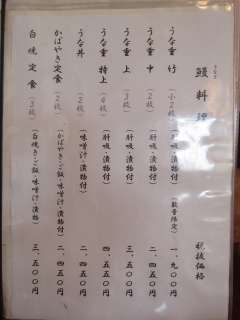 うなぎ
鰻料理
税抜価格
うな重 竹 (小2枚) (肝吸・漬物付) (数量限定) 一、九〇〇円
うな重 中 (2枚) (肝吸・漬物付) 二、四五〇円
うな重 上 (3枚) (肝吸・漬物付) 三、五〇〇円
うな重 特上 (4枚) (肝吸・漬物付) 四、五五〇円
うな丼 (2枚) (味噌汁・漬物付) 二、四五〇円
かばやき定食 (2枚) (かばやき・ご飯・味噌汁・漬物) 二、四五〇円
白焼定食 (3枚) (白焼き・ご飯・味噌汁・漬物) 三、五〇〇円